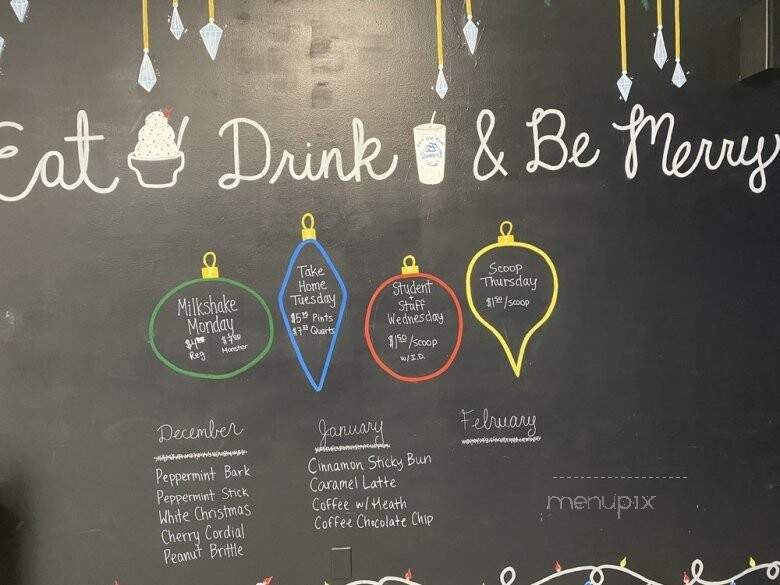 Eat Drink & Be Merry
Milkshake
Monday
Reg
Monster
Take
Home
Tuesday
Pints
Quarts
Student
+
Staff
Wednesday
$1.50/scoop
w/I.D.
Scoop
Thursday
$1.50/scoop
December
Peppermint Bark
Peppermint Stick
White Christmas
Cherry Cordial
Peanut Brittle
January
Cinnamon Sticky Bun
Caramel Latte
Coffee w/Heath
Coffee Chocolate Chip
February
menupix